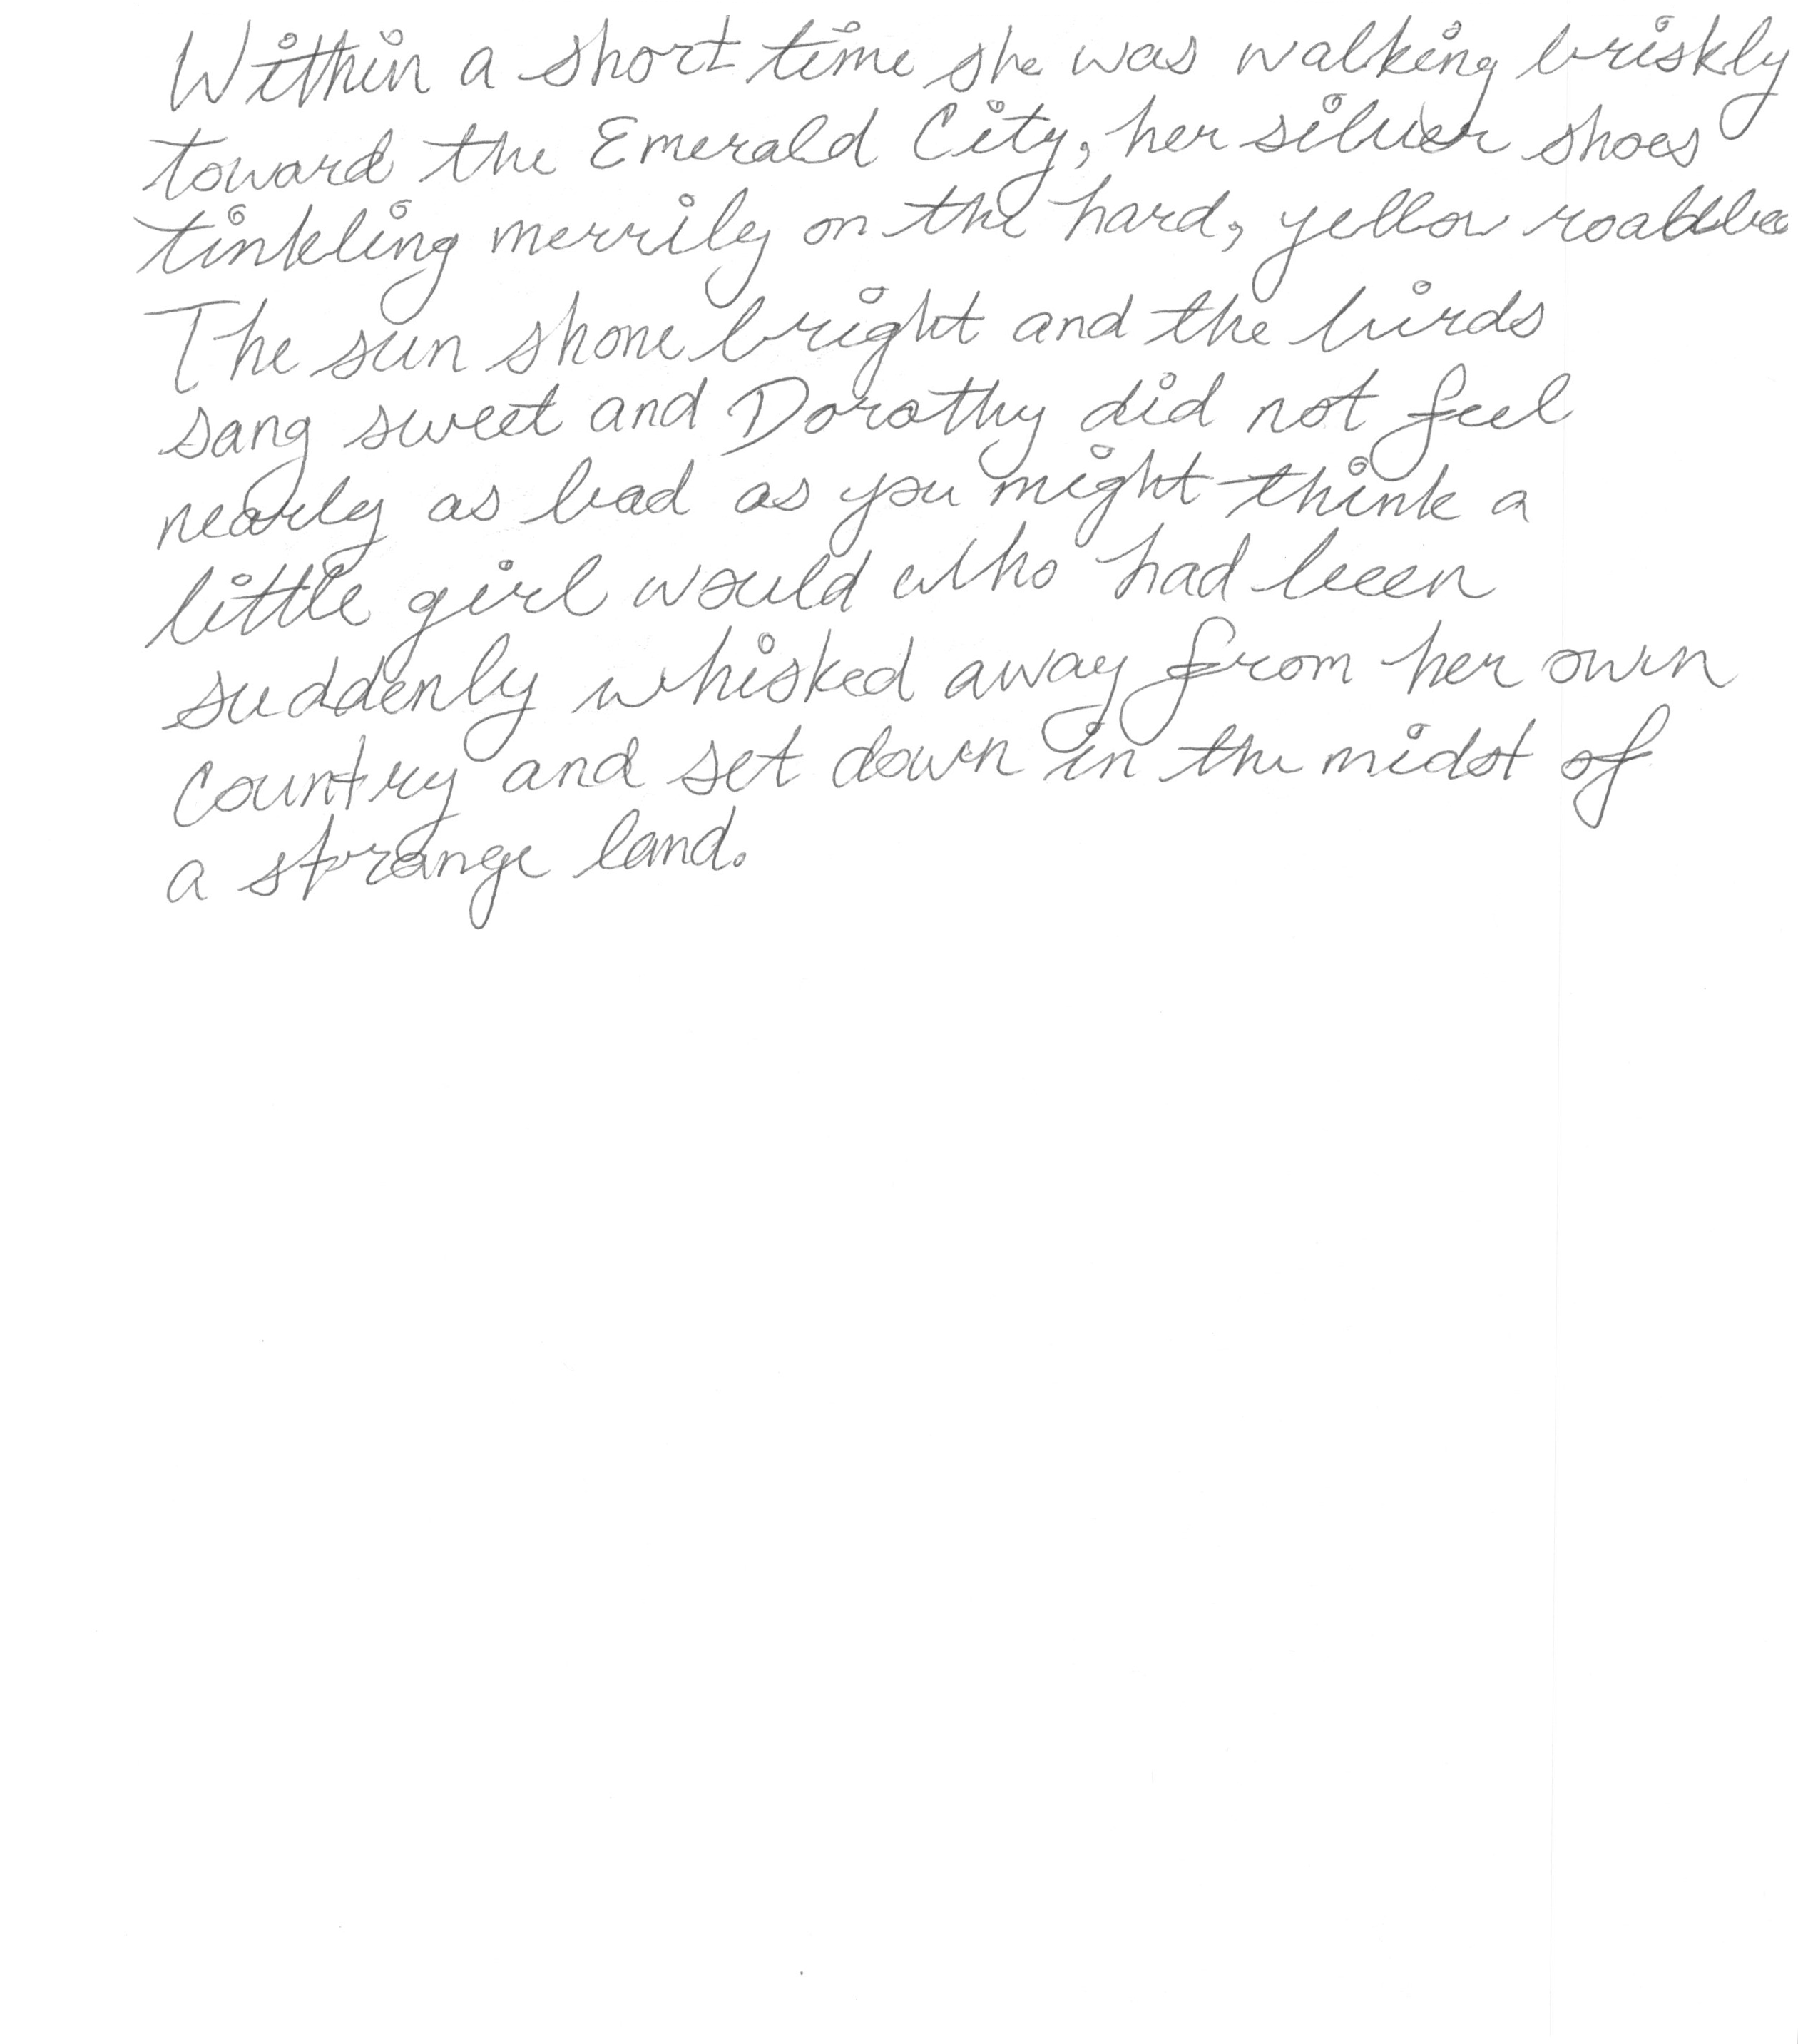 Within a short time she was walking briskly
toward the Emerald City, her silver shoes
tinkling merrily on the hard, yellow
The sun shone bright and the birds
sang sweet and Dorothy did not feel
nearly as bad as you might think a
little girl would who had been
suddenly whisked away from her own
country and set down in the midst of
a strange land.